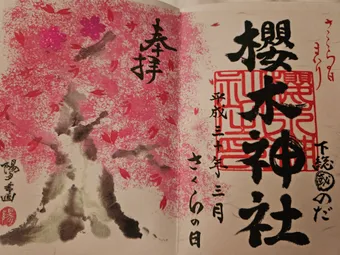 さくらの日
まいり
櫻木神社
下総國のだ
平成三十年三月
さくらの日
奉拝